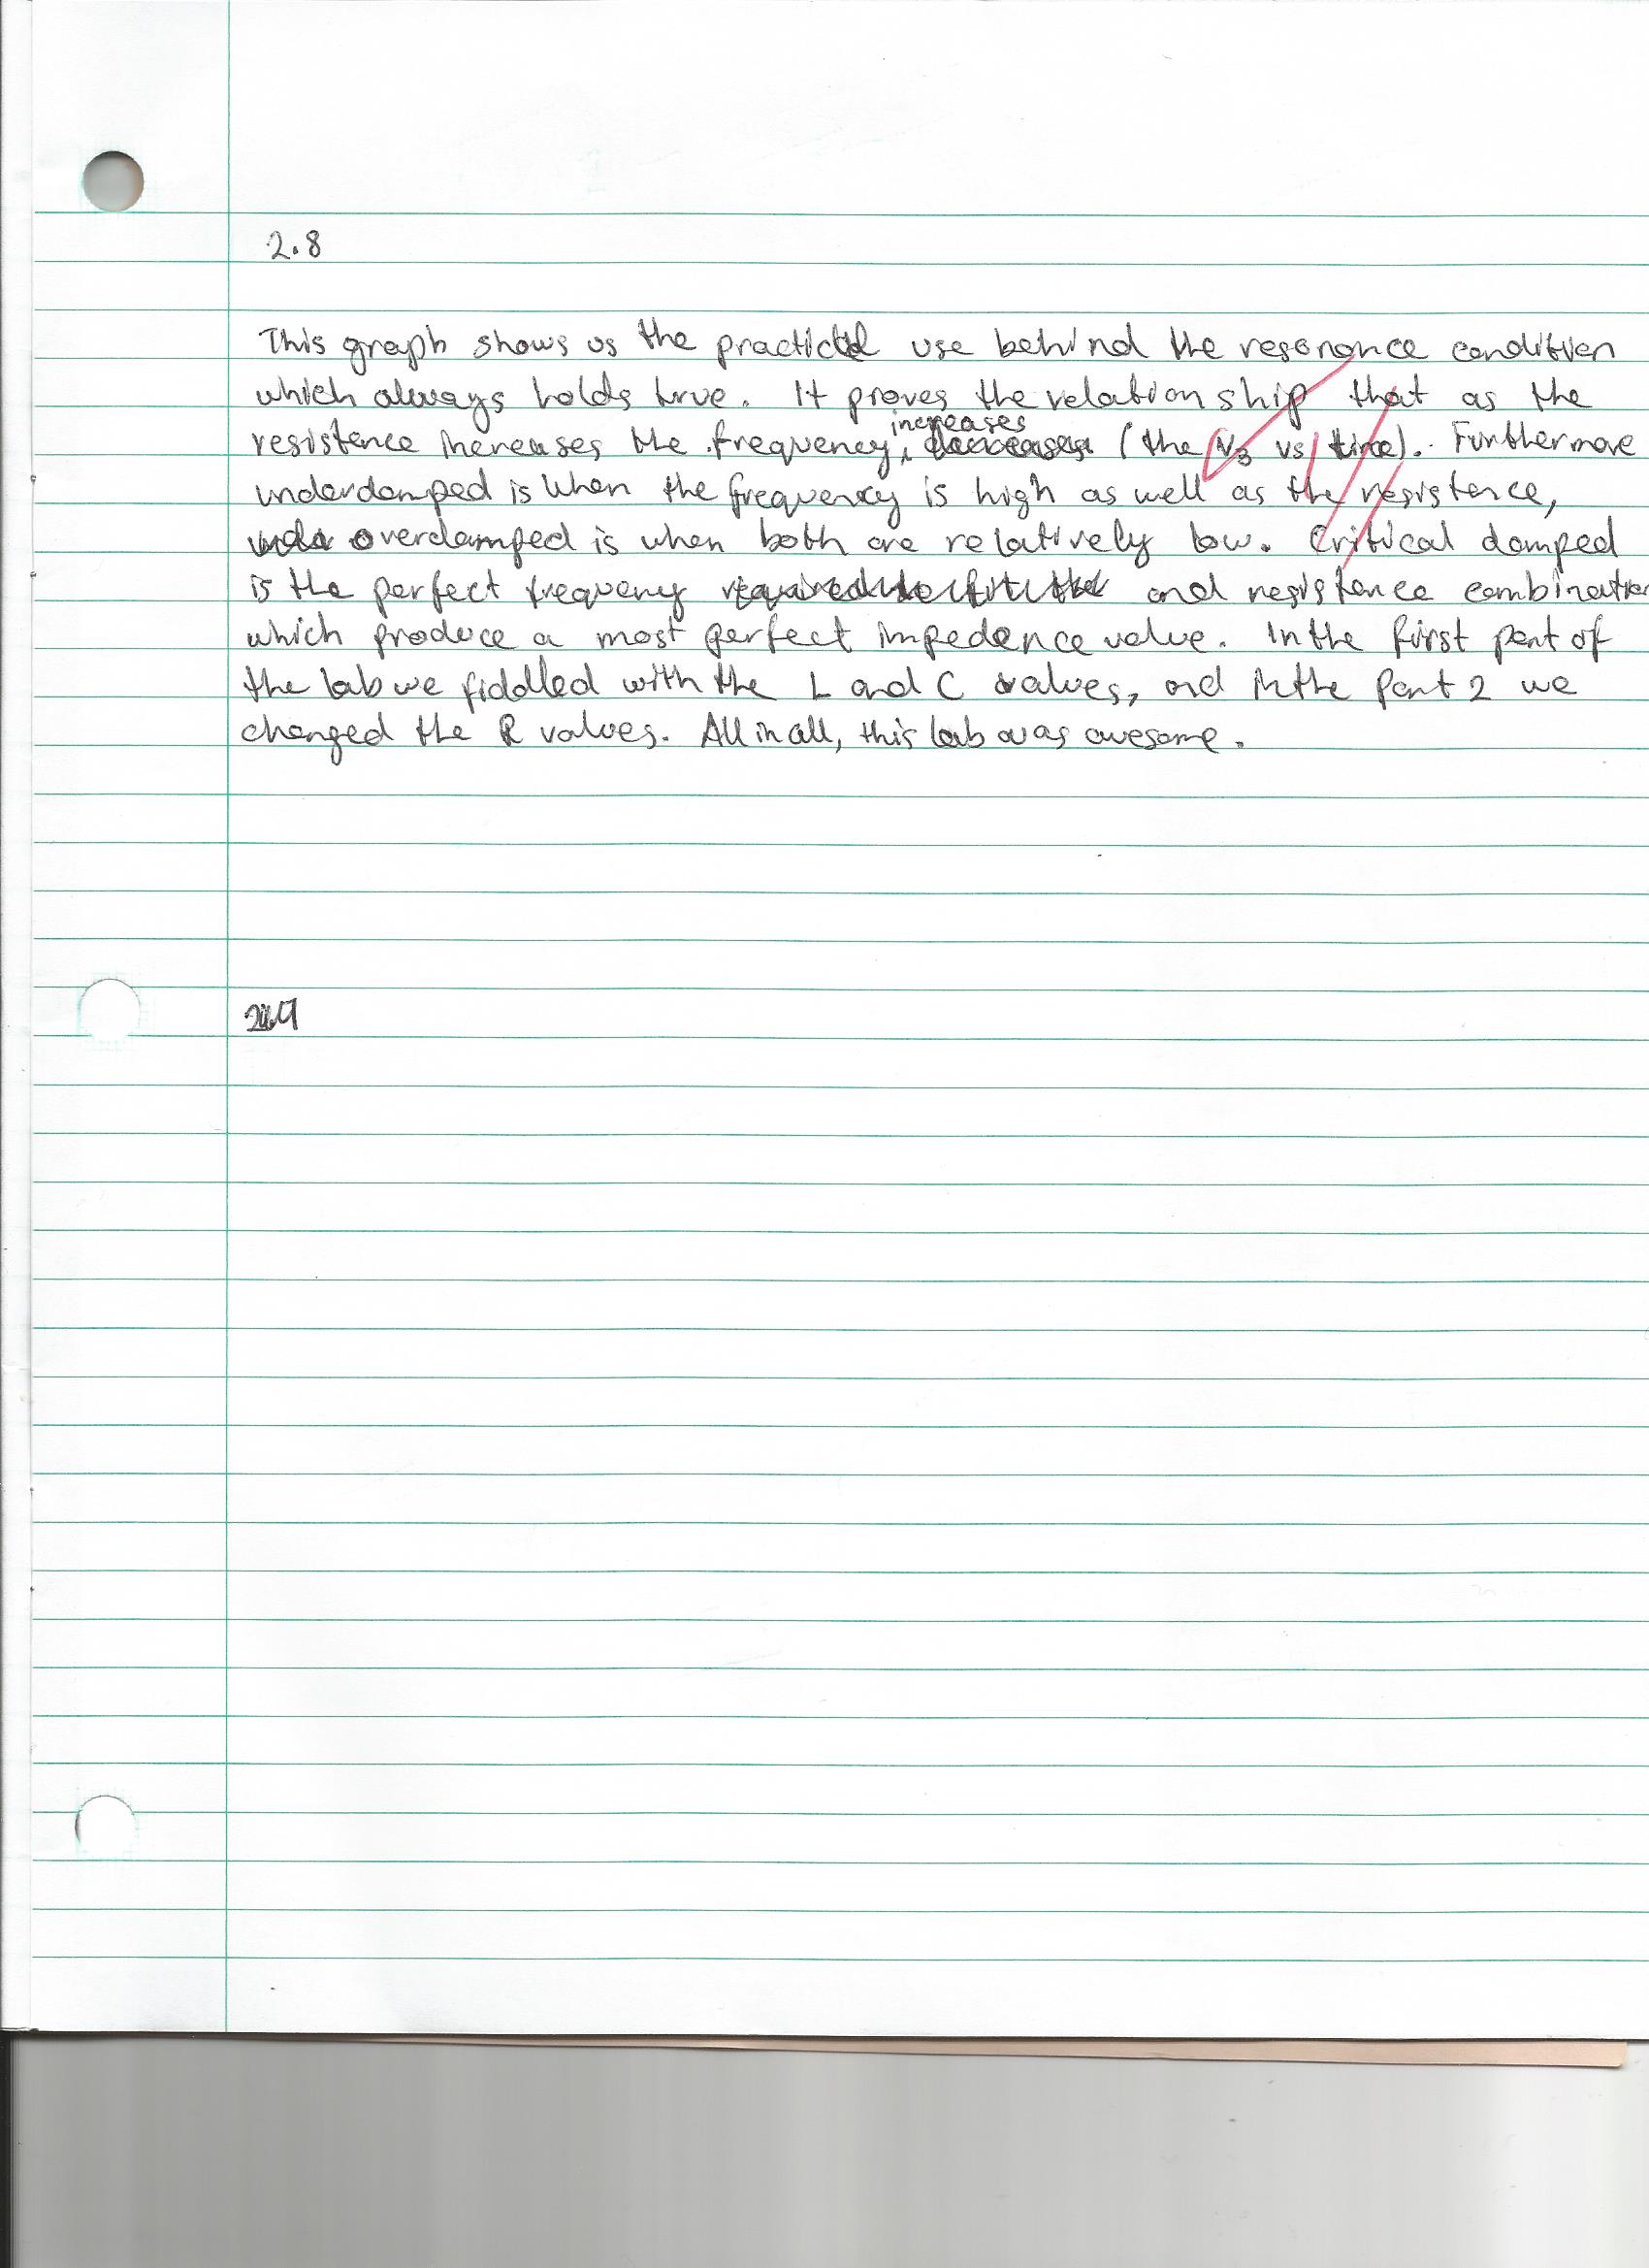 2.8
This graph shows us the practical use behind the resonance condition
which always holds true. It proves the relationship that as the
increases
resistence increases the frequency, (the V3 vs time). Furthermore
underdamped is when the frequency is high as well as the resistence,
overdamped is when both are relatively low. Critical damped
is the perfect frequency and resistence combination
which produce a most perfect impedence value. In the first part of
the lab we fiddled with the L and C values, and in the part 2 we
changed the R values. All in all, this lab was awesome.